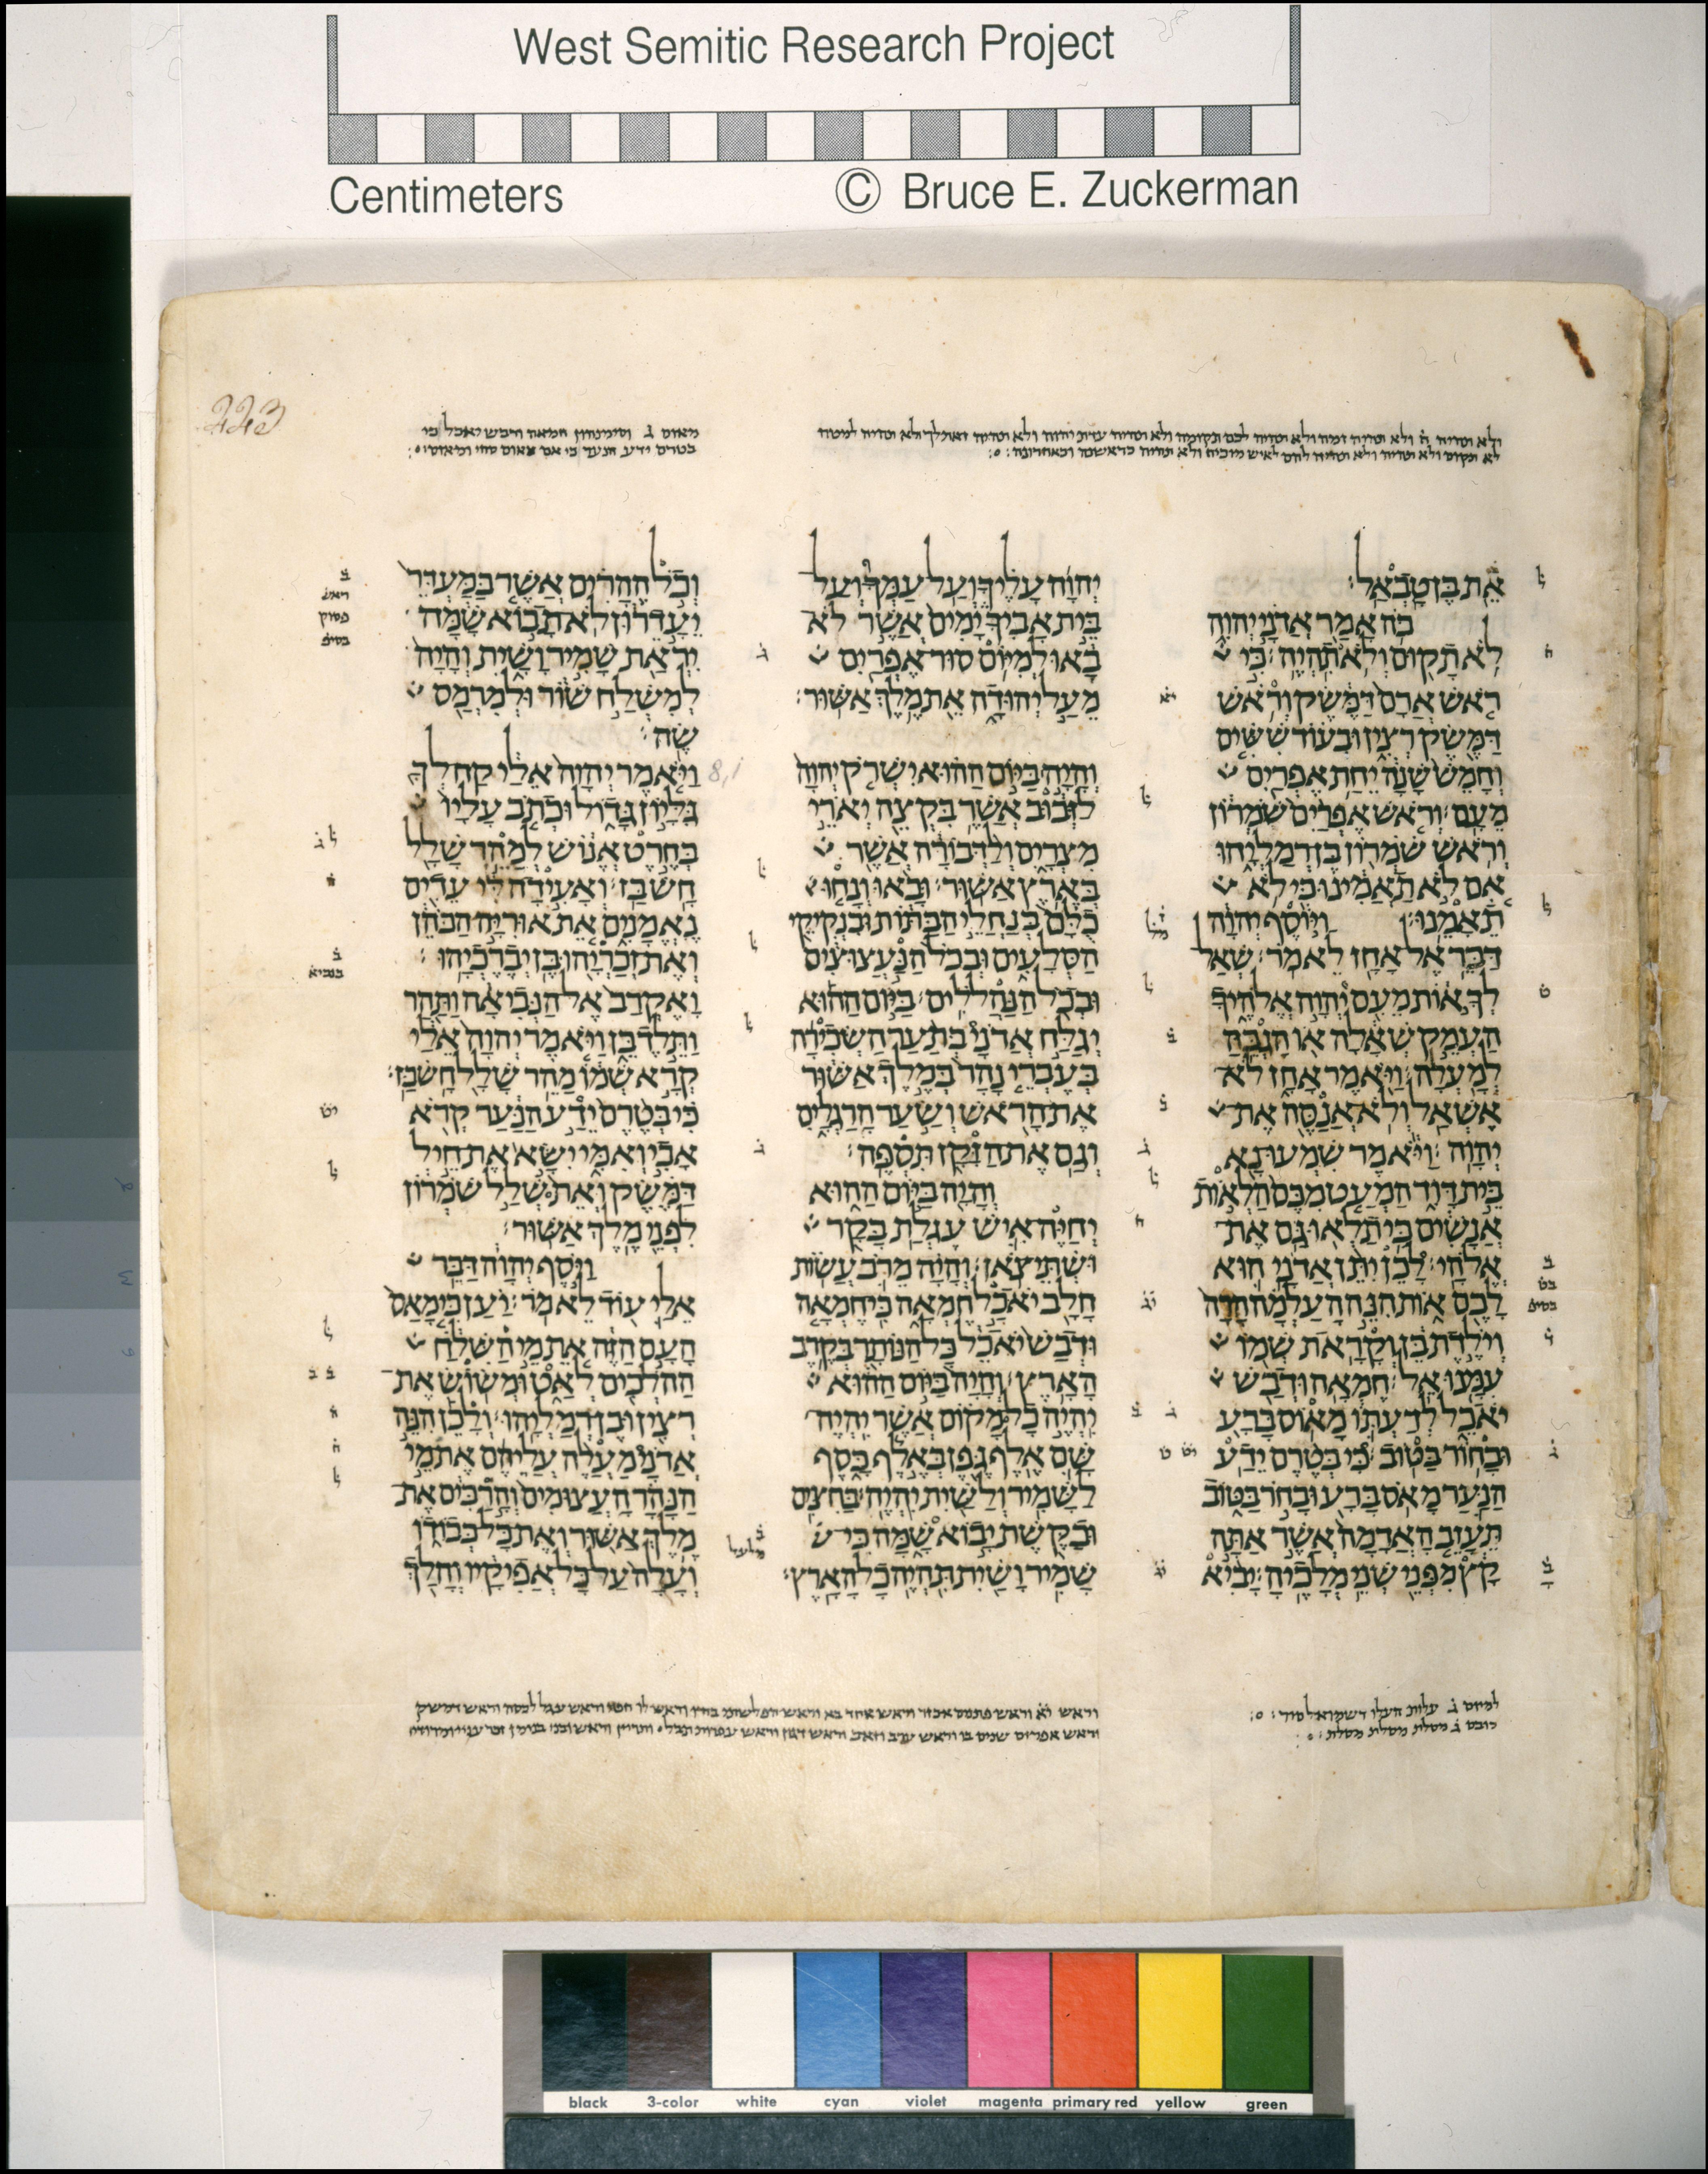 West Semitic Research Project
Centimeters © Bruce E. Zuckerman
223
אֵת בֶּן טָבְאַל׃
כֹּה אָמַר אֲדֹנָי יְהוִה
לֹא תָקוּם וְלֹא תִהְיֶה׃ כִּי
רֹאשׁ אֲרָם דַּמֶּשֶׂק וְרֹאשׁ
דַּמֶּשֶׂק רְצִין וּבְעוֹד שִׁשִּׁים
וְחָמֵשׁ שָׁנָה יֵחַת אֶפְרַיִם
מֵעָם׃ וְרֹאשׁ אֶפְרַיִם שֹׁמְרוֹן
וְרֹאשׁ שֹׁמְרוֹן בֶּן רְמַלְיָהוּ
אִם לֹא תַאֲמִינוּ כִּי לֹא
תֵאָמֵנוּ׃ וַיּוֹסֶף יְהוָה
דַּבֵּר אֶל אָחָז לֵאמֹר׃ שְׁאַל
לְךָ אוֹת מֵעִם יְהוָה אֱלֹהֶיךָ
הַעְמֵק שְׁאָלָה אוֹ הַגְבֵּהַּ
לְמָעְלָה׃ וַיֹּאמֶר אָחָז לֹא
אֶשְׁאַל וְלֹא אֲנַסֶּה אֶת
יְהוָה׃ וַיֹּאמֶר שִׁמְעוּ נָא
בֵּית דָּוִד הַמְעַט מִכֶּם הַלְאוֹת
אֲנָשִׁים כִּי תַלְאוּ גַּם אֶת
אֱלֹהָי׃ לָכֵן יִתֵּן אֲדֹנָי הוּא
לָכֶם אוֹת הִנֵּה הָעַלְמָה הָרָה
וְיֹלֶדֶת בֵּן וְקָרָאת שְׁמוֹ
עִמָּנוּ אֵל׃ חֶמְאָה וּדְבַשׁ
יֹאכֵל לְדַעְתּוֹ מָאוֹס בָּרָע
וּבָחוֹר בַּטּוֹב׃ כִּי בְּטֶרֶם יֵדַע
הַנַּעַר מָאֹס בָּרָע וּבָחֹר בַּטּוֹב
תֵּעָזֵב הָאֲדָמָה אֲשֶׁר אַתָּה
קָץ מִפְּנֵי שְׁנֵי מְלָכֶיהָ׃ יָבִיא
יְהוָה עָלֶיךָ וְעַל עַמְּךָ וְעַל
בֵּית אָבִיךָ יָמִים אֲשֶׁר לֹא
בָאוּ לְמִיּוֹם סוּר אֶפְרַיִם
מֵעַל יְהוּדָה אֵת מֶלֶךְ אַשּׁוּר׃
וְהָיָה בַּיּוֹם הַהוּא יִשְׁרֹק יְהוָה
לַזְּבוּב אֲשֶׁר בִּקְצֵה יְאֹרֵי
מִצְרָיִם וְלַדְּבוֹרָה אֲשֶׁר
בְּאֶרֶץ אַשּׁוּר׃ וּבָאוּ וְנָחוּ
כֻלָּם בְּנַחֲלֵי הַבַּתּוֹת וּבִנְקִיקֵי
הַסְּלָעִים וּבְכֹל הַנַּעֲצוּצִים
וּבְכֹל הַנַּהֲלֹלִים׃ בַּיּוֹם הַהוּא
יְגַלַּח אֲדֹנָי בְּתַעַר הַשְּׂכִירָה
בְּעֶבְרֵי נָהָר בְּמֶלֶךְ אַשּׁוּר
אֶת הָרֹאשׁ וְשַׂעַר הָרַגְלָיִם
וְגַם אֶת הַזָּקָן תִּסְפֶּה׃
וְהָיָה בַּיּוֹם הַהוּא
יְחַיֶּה אִישׁ עֶגְלַת בָּקָר
וּשְׁתֵּי צֹאן׃ וְהָיָה מֵרֹב עֲשׂוֹת
חָלָב יֹאכַל חֶמְאָה כִּי חֶמְאָה
וּדְבַשׁ יֹאכֵל כָּל הַנּוֹתָר בְּקֶרֶב
הָאָרֶץ׃ וְהָיָה בַּיּוֹם הַהוּא
יִהְיֶה כָל מָקוֹם אֲשֶׁר יִהְיֶה
שָּׁם אֶלֶף גֶּפֶן בְּאֶלֶף כָּסֶף
לַשָּׁמִיר וְלַשַּׁיִת יִהְיֶה׃ בַּחִצִּים
וּבַקֶּשֶׁת יָבוֹא שָׁמָּה כִּי
שָׁמִיר וָשַׁיִת תִּהְיֶה כָל הָאָרֶץ׃
וְכֹל הֶהָרִים אֲשֶׁר בַּמַּעְדֵּר
יֵעָדֵרוּן לֹא תָבוֹא שָׁמָּה
יִרְאַת שָׁמִיר וָשָׁיִת וְהָיָה
לְמִשְׁלַח שׁוֹר וּלְמִרְמַס
שֶׂה׃
8,1 וַיֹּאמֶר יְהוָה אֵלַי קַח לְךָ
גִּלָּיוֹן גָּדוֹל וּכְתֹב עָלָיו
בְּחֶרֶט אֱנוֹשׁ לְמַהֵר שָׁלָל
חָשׁ בַּז׃ וְאָעִידָה לִּי עֵדִים
נֶאֱמָנִים אֵת אוּרִיָּה הַכֹּהֵן
וְאֶת זְכַרְיָהוּ בֶּן יְבֶרֶכְיָהוּ׃
וָאֶקְרַב אֶל הַנְּבִיאָה וַתַּהַר
וַתֵּלֶד בֵּן וַיֹּאמֶר יְהוָה אֵלַי
קְרָא שְׁמוֹ מַהֵר שָׁלָל חָשׁ בַּז׃
כִּי בְּטֶרֶם יֵדַע הַנַּעַר קְרֹא
אָבִי וְאִמִּי יִשָּׂא אֶת חֵיל
דַּמֶּשֶׂק וְאֵת שְׁלַל שֹׁמְרוֹן
לִפְנֵי מֶלֶךְ אַשּׁוּר׃
וַיֹּסֶף יְהוָה דַּבֵּר
אֵלַי עוֹד לֵאמֹר׃ יַעַן כִּי מָאַס
הָעָם הַזֶּה אֵת מֵי הַשִּׁלֹחַ
הַהֹלְכִים לְאַט וּמְשׂוֹשׂ אֶת
רְצִין וּבֶן רְמַלְיָהוּ׃ וְלָכֵן הִנֵּה
אֲדֹנָי מַעֲלֶה עֲלֵיהֶם אֶת מֵי
הַנָּהָר הָעֲצוּמִים וְהָרַבִּים אֶת
מֶלֶךְ אַשּׁוּר וְאֶת כָּל כְּבוֹדוֹ
וְעָלָה עַל כָּל אֲפִיקָיו וְהָלַךְ
black 3-color white cyan violet magenta primary red yellow green